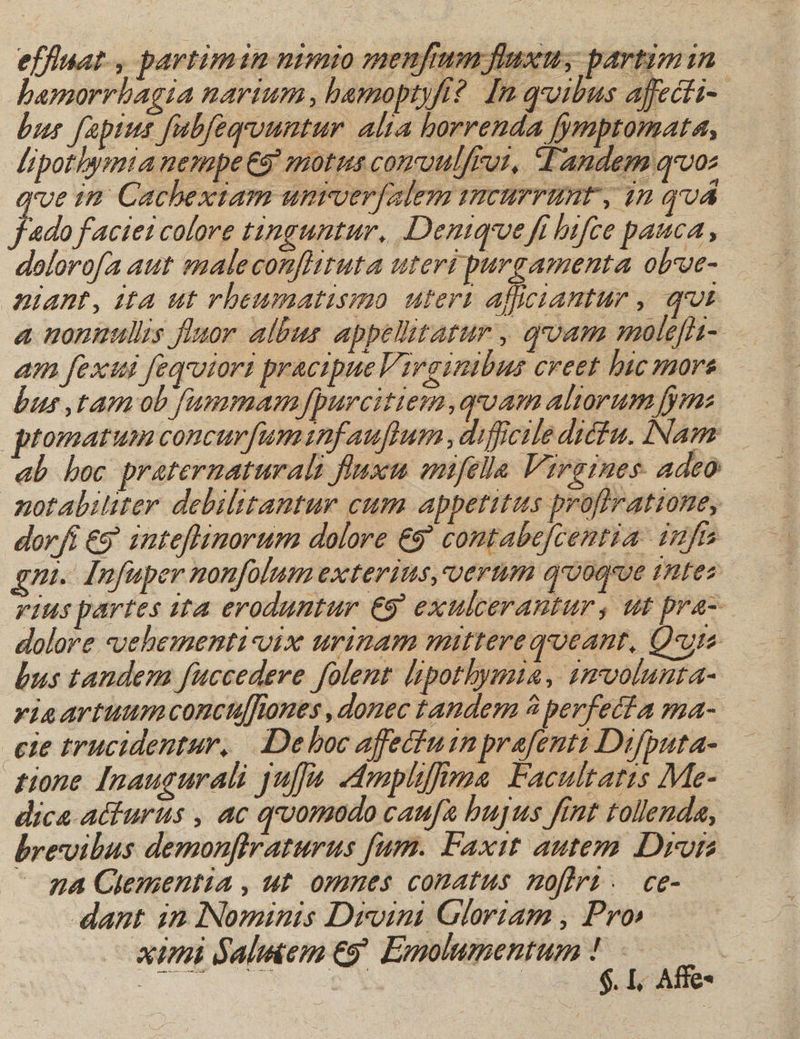 effluat , partim in nimio menſium fluxu, partim in
hæmorrhagia narium, hæmoptyſi? In qvibus affecti-
bus ſæpius ſubſeqvuntur alia horrenda ſymptomata,
lipothymia nempe & motus convulſivi, Tandem qvoz
qve in Cachexiam univerſalem incurrunt, in qvâ
fædo faciei colore tinguntur. Deniqve ſi hiſce pauca,
doloroſa aut male conſtituta uteri purgamenta obve-
niant, ita ut rheumatismo uteri afficiantur, qvi
a nonnullis fluor albus appellitatur, qvam moleſti-
am ſexui ſeqviori præcipue Virginibus creet hic mor=
bus, tam ob ſummam ſpurcitiem, qvam aliorum ſym=
ptomatum concurſum infauſtum, difficile dictu. Nam
ab hoc præternaturali fluxu miſellæ Virgines adeo
notabiliter debilitantur cum appetitus proſtratione,
dorſi & inteſtinorum dolore & contabeſcentia inſi=
gni. Inſuper nonſolum exterius, verum qvoqve inte=
rius partes ita eroduntur & exulcerantur, ut præ-
dolore vehementi vix urinam mittere qveant. Qvi=
bus tandem ſuccedere ſolent lipothymia, involunta-
riæ artuum concuſſiones, donec tandem à perfecta ma-
cie trucidentur. De hoc affectu in præſenti Diſputa-
tione Inaugurali juſſu Ampliſſimæ Facultatis Me-
dicæ acturus , ac qvomodo cauſæ hujus ſint tollendæ,
brevibus demonſtraturus ſum. Faxit autem Divi=
na Clementia , ut omnes conatus noſtri . ce-
dant in Nominis Divini Gloriam, Pro=
ximi Salutem & Emolumentum !
§. I, Affe=